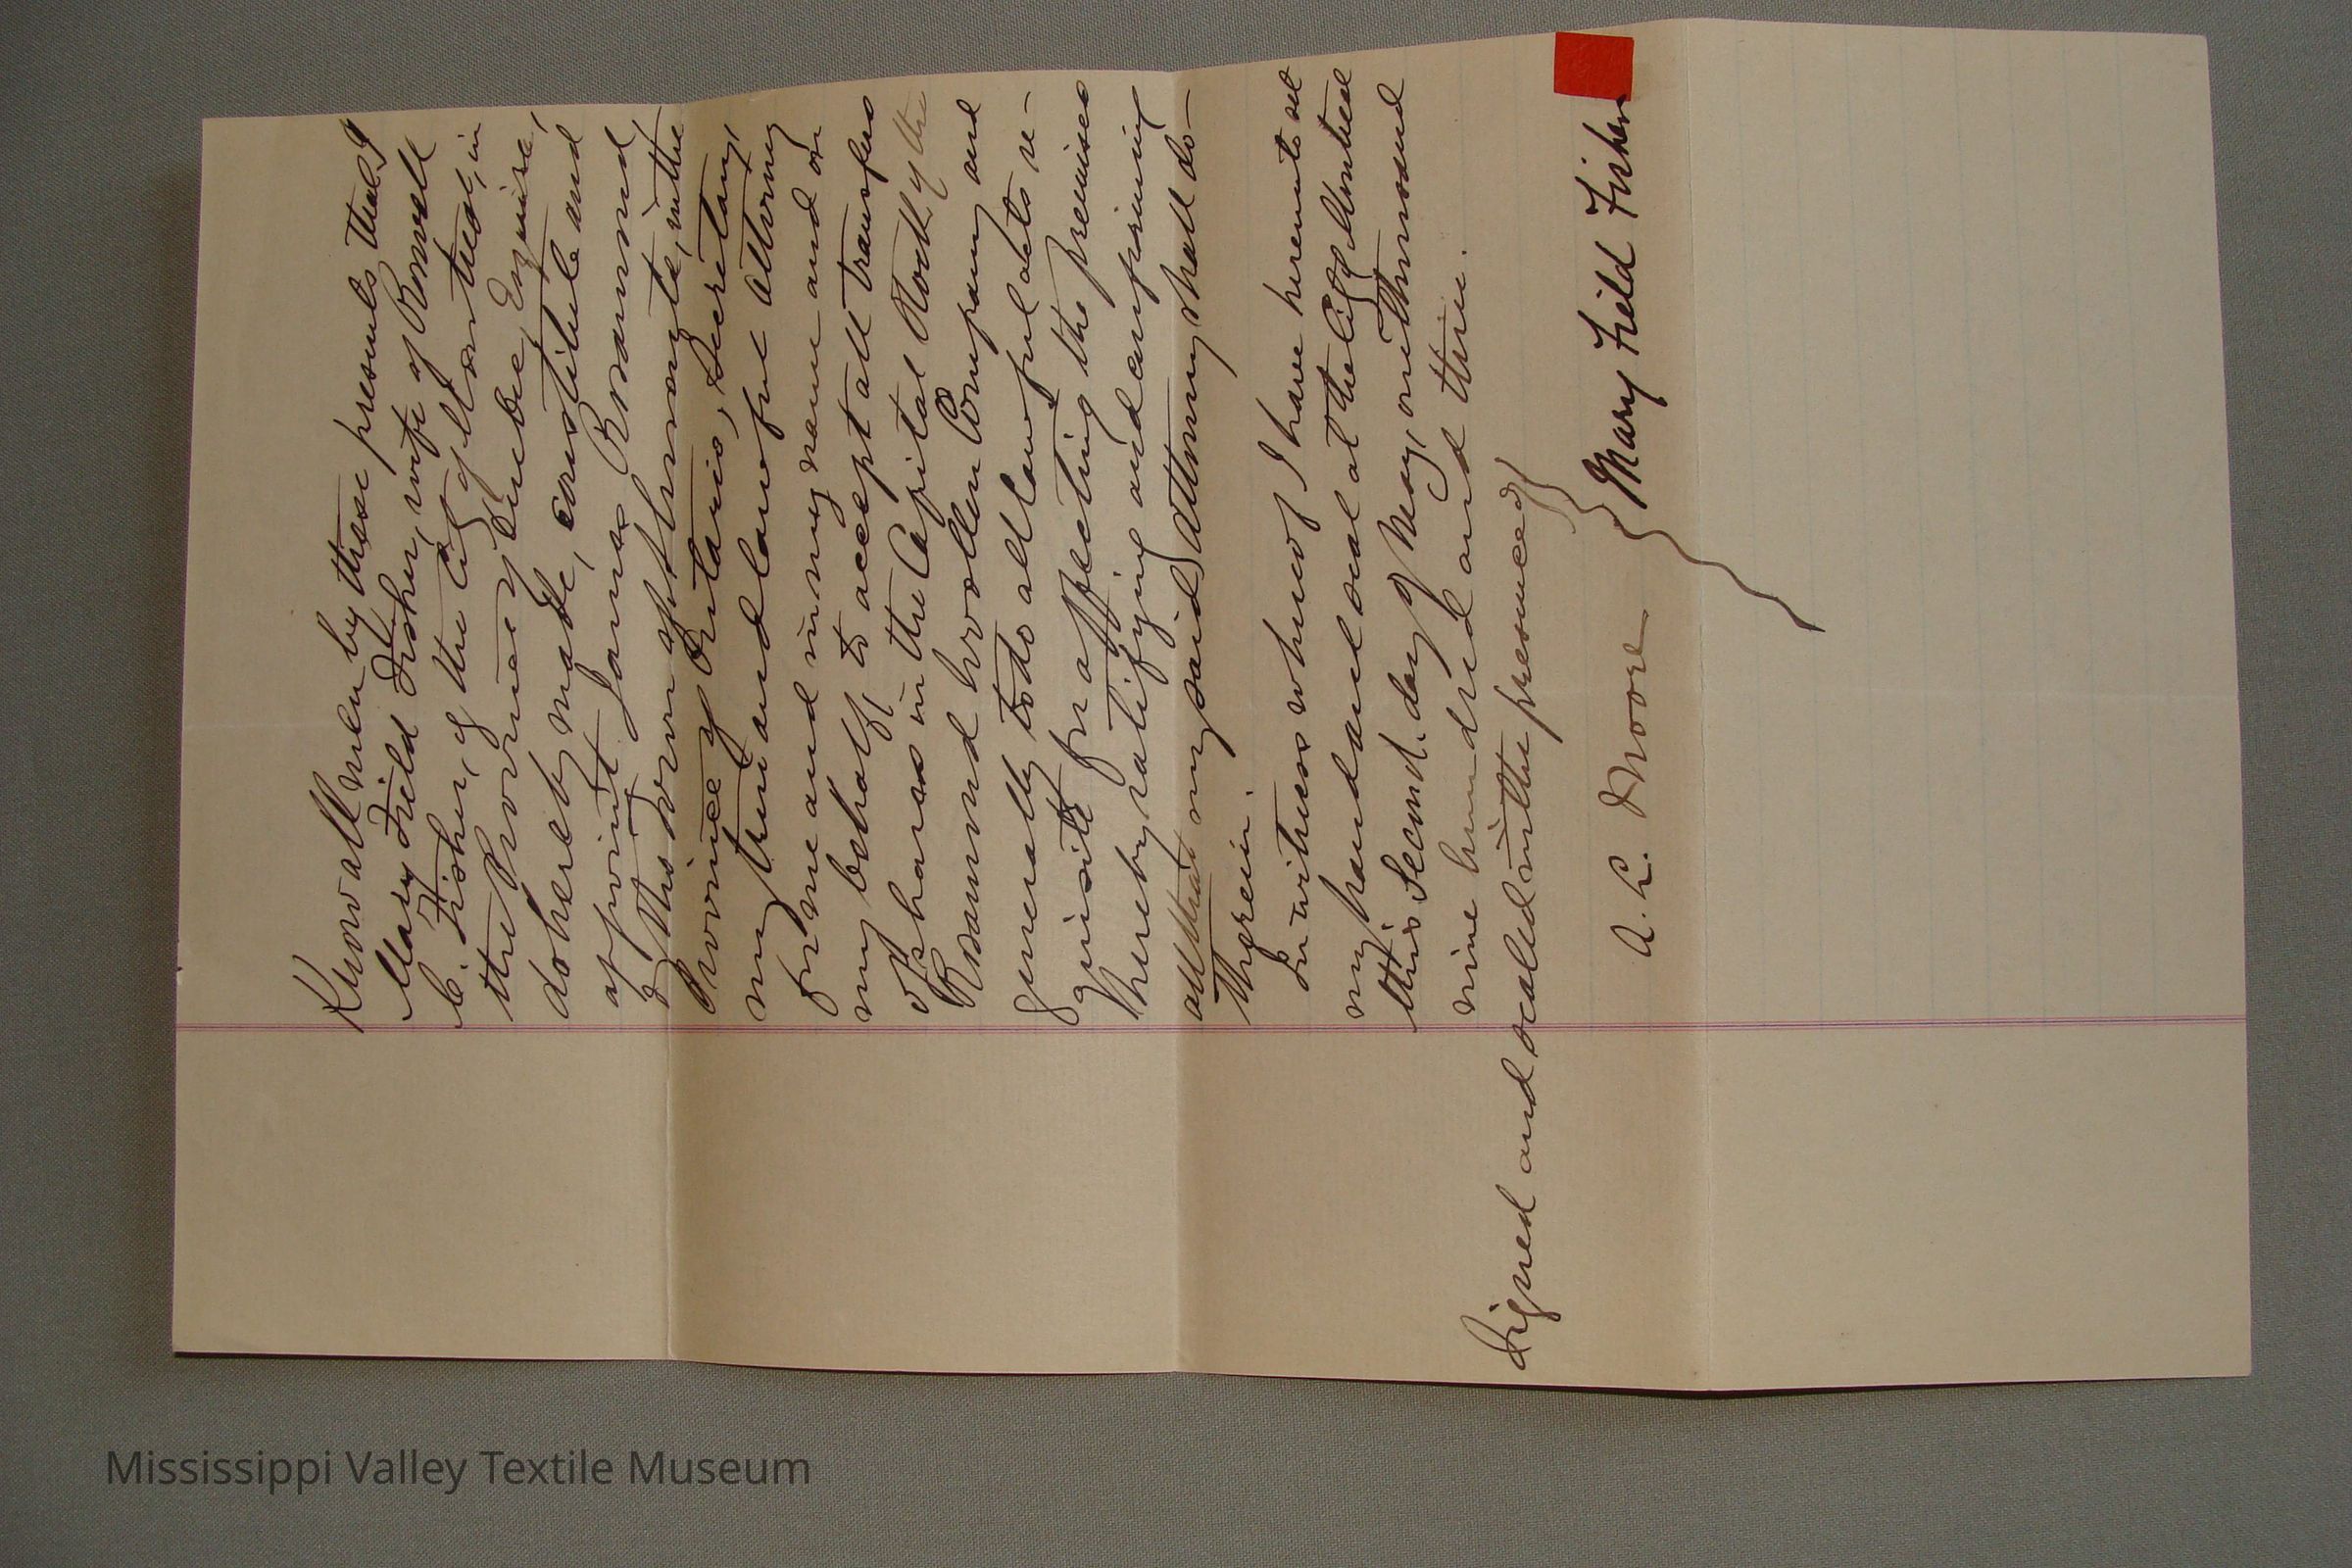 Know all men by these presents that I
Mary Field Fisher, wife of Roswell
C. Fisher, of the City of Montreal, in
the Province of Quebec, Esquire,
do hereby make, constitute and
appoint James Rosamond,
of the Town of Almonte, in the
Province of Ontario, Secretary,
my true and lawful Attorney
for me and in my name and on
my behalf, to accept all transfers
of shares in the Capital Stock of the
Rosamond Woollen Company and
generally to do all lawful acts re-
quisite for affecting the premises
hereby ratifying and confirming
all that my said Attorney shall do
therein.
In witness whereof I have hereunto set
my hand and seal at the City of Montreal
this Second day of May, one thousand
nine hundred and three.
Signed and sealed in the presence of
A. L. Moore
Mary Field Fisher
Mississippi Valley Textile Museum